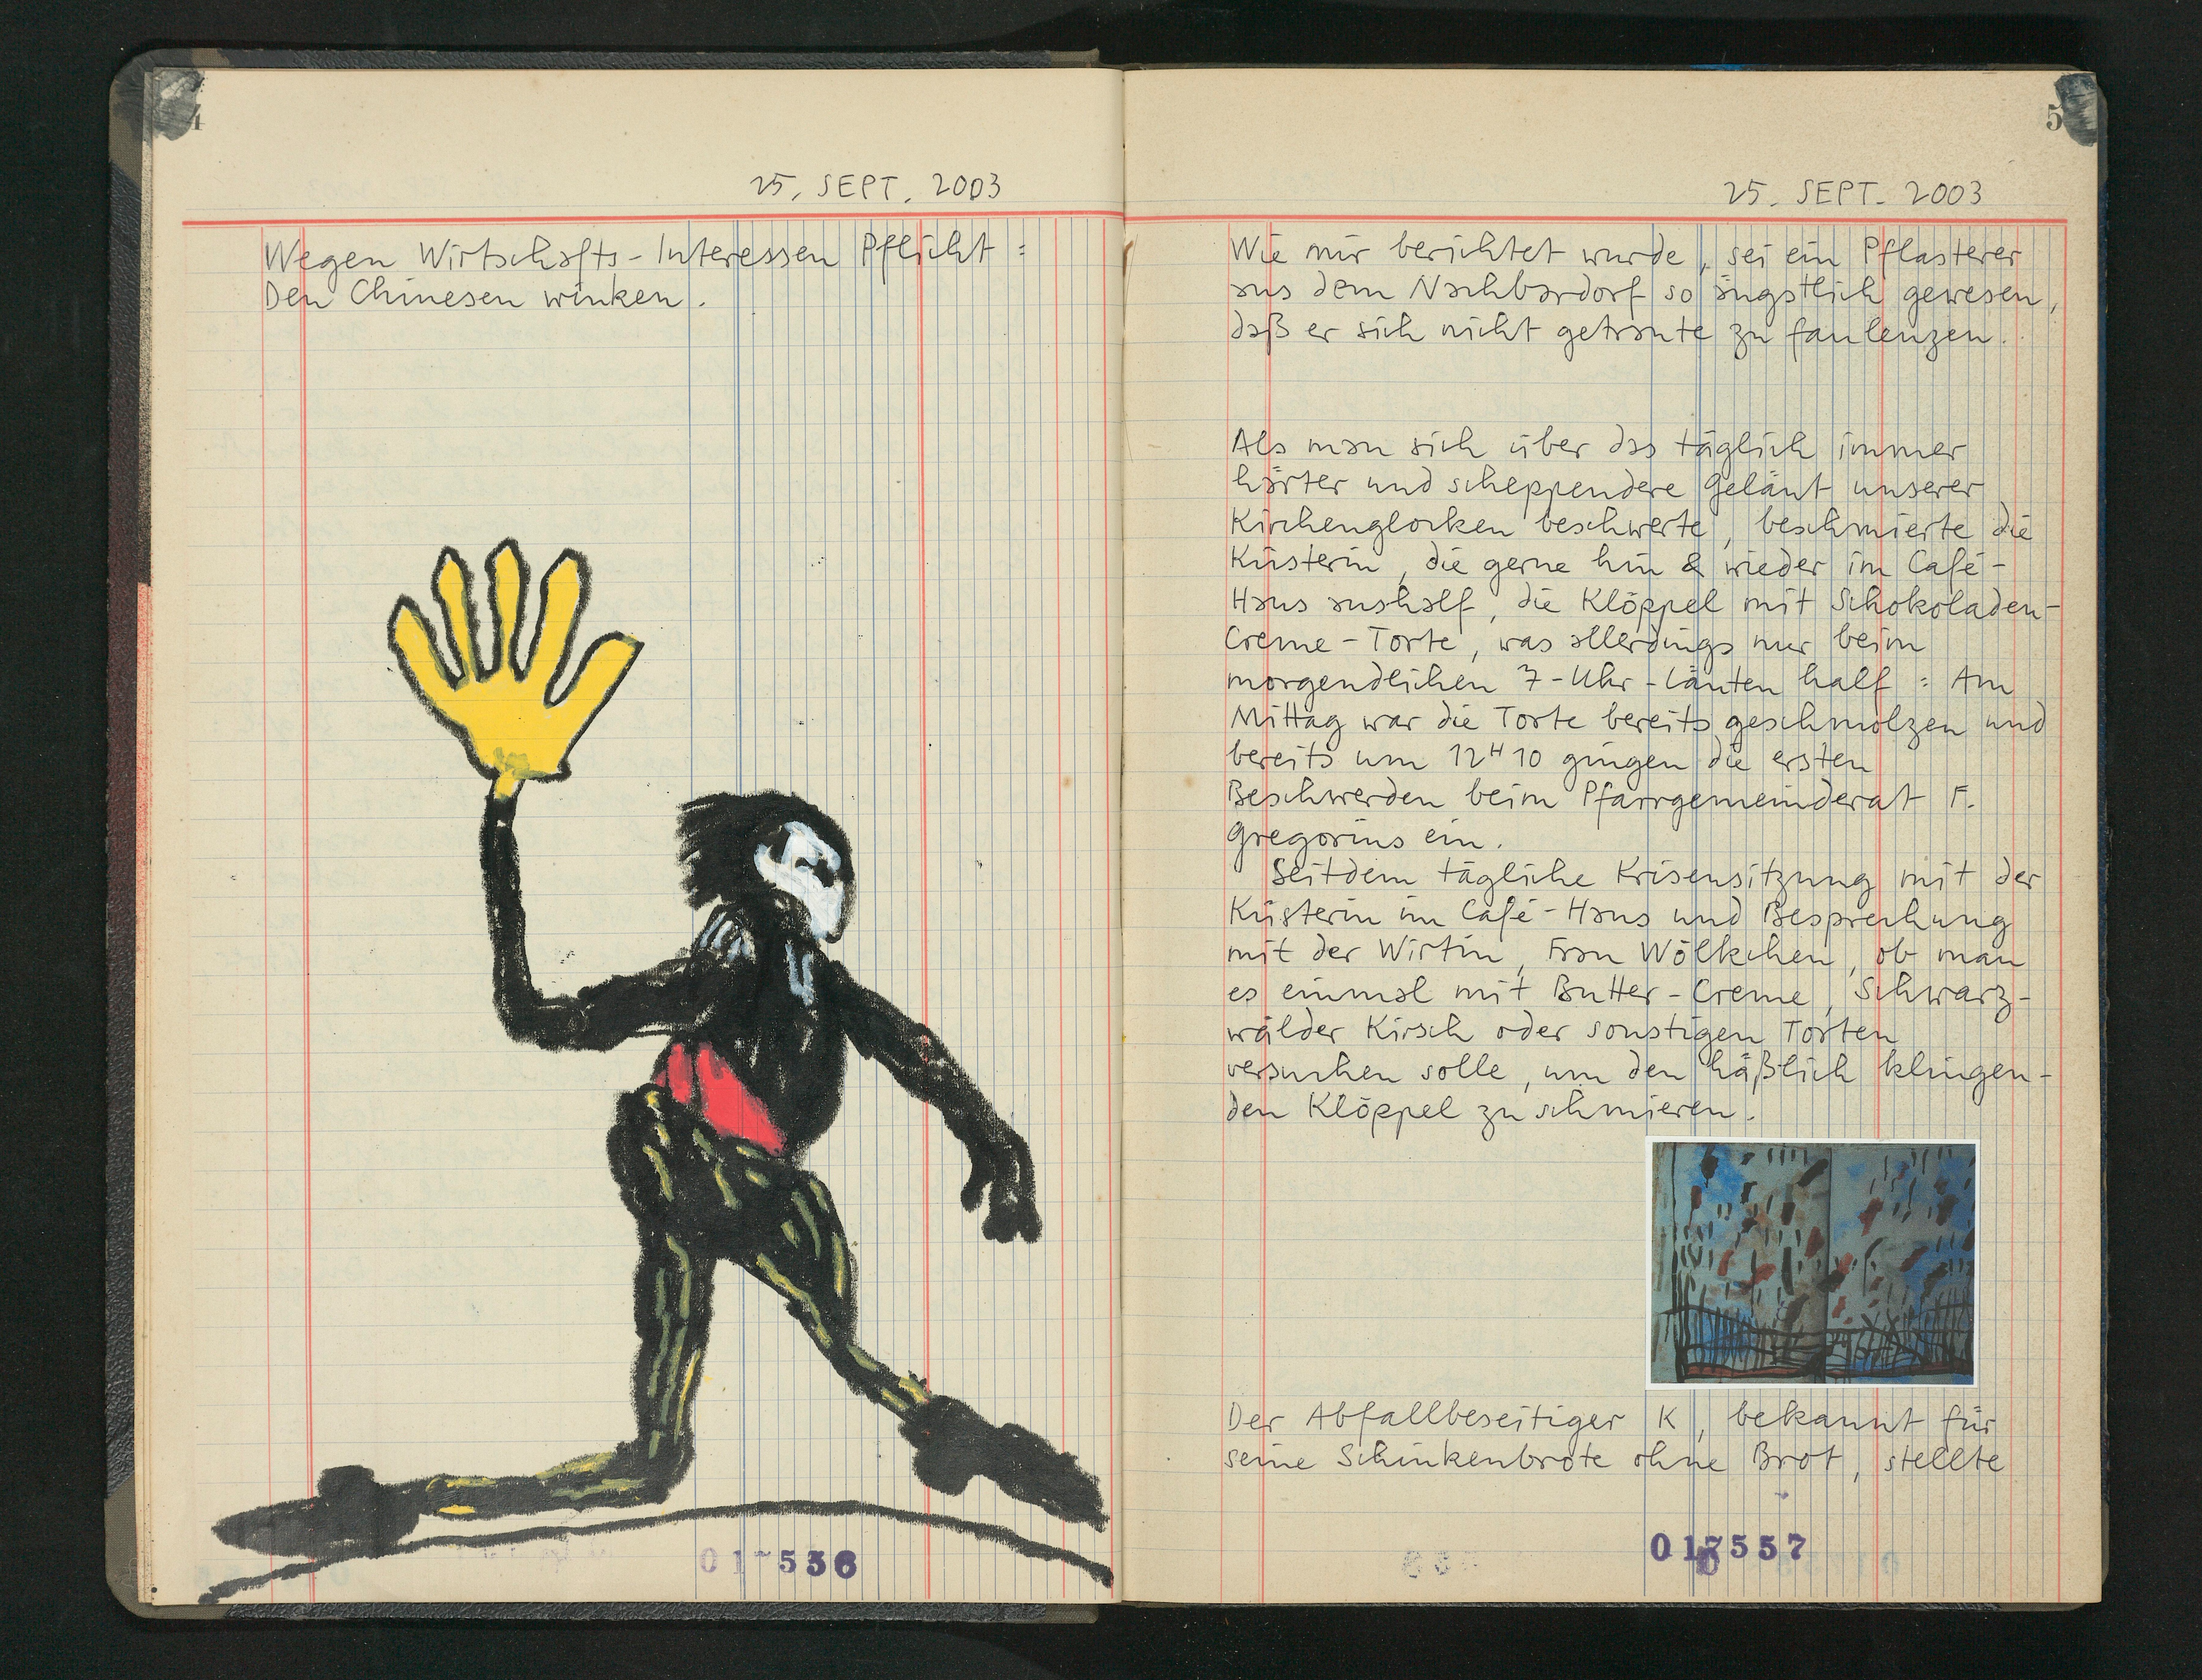 4
25. SEPT. 2003
Wegen Wirtschafts-Interessen Pflicht :
Den Chinesen winken.
017536
5
25. SEPT. 2003
Wie mir berichtet wurde, sei ein Pflasterer
aus dem Nachbardorf so ängstlich gewesen,
daß er sich nicht getraute zu faulenzen.
Als man sich über das täglich immer
härter und scheppendere Geläut unserer
Kirchenglocken beschwerte, beschmierte die
Küsterin, die gerne hin & wieder im Café-
Haus aushalf, die Klöppel mit Schokoladen-
Creme-Torte, was allerdings nur beim
morgendlichen 7-Uhr-Läuten half : Am
Mittag war die Torte bereits geschmolzen und
bereits um 12H10 gingen die ersten
Beschwerden beim Pfarrgemeinderat F.
Gregorius ein.
Seitdem tägliche Krisensitzung mit der
Küsterin im Café-Haus und Besprechung
mit der Wirtin, Frau Wölkchen, ob man
es einmal mit Butter-Creme, Schwarz-
wälder Kirsch oder sonstigen Torten
versuchen solle, um den häßlich klingen-
den Klöppel zu schmieren.
Der Abfallbeseitiger K, bekannt für
seine Schinkenbrote ohne Brot, stellte
017557